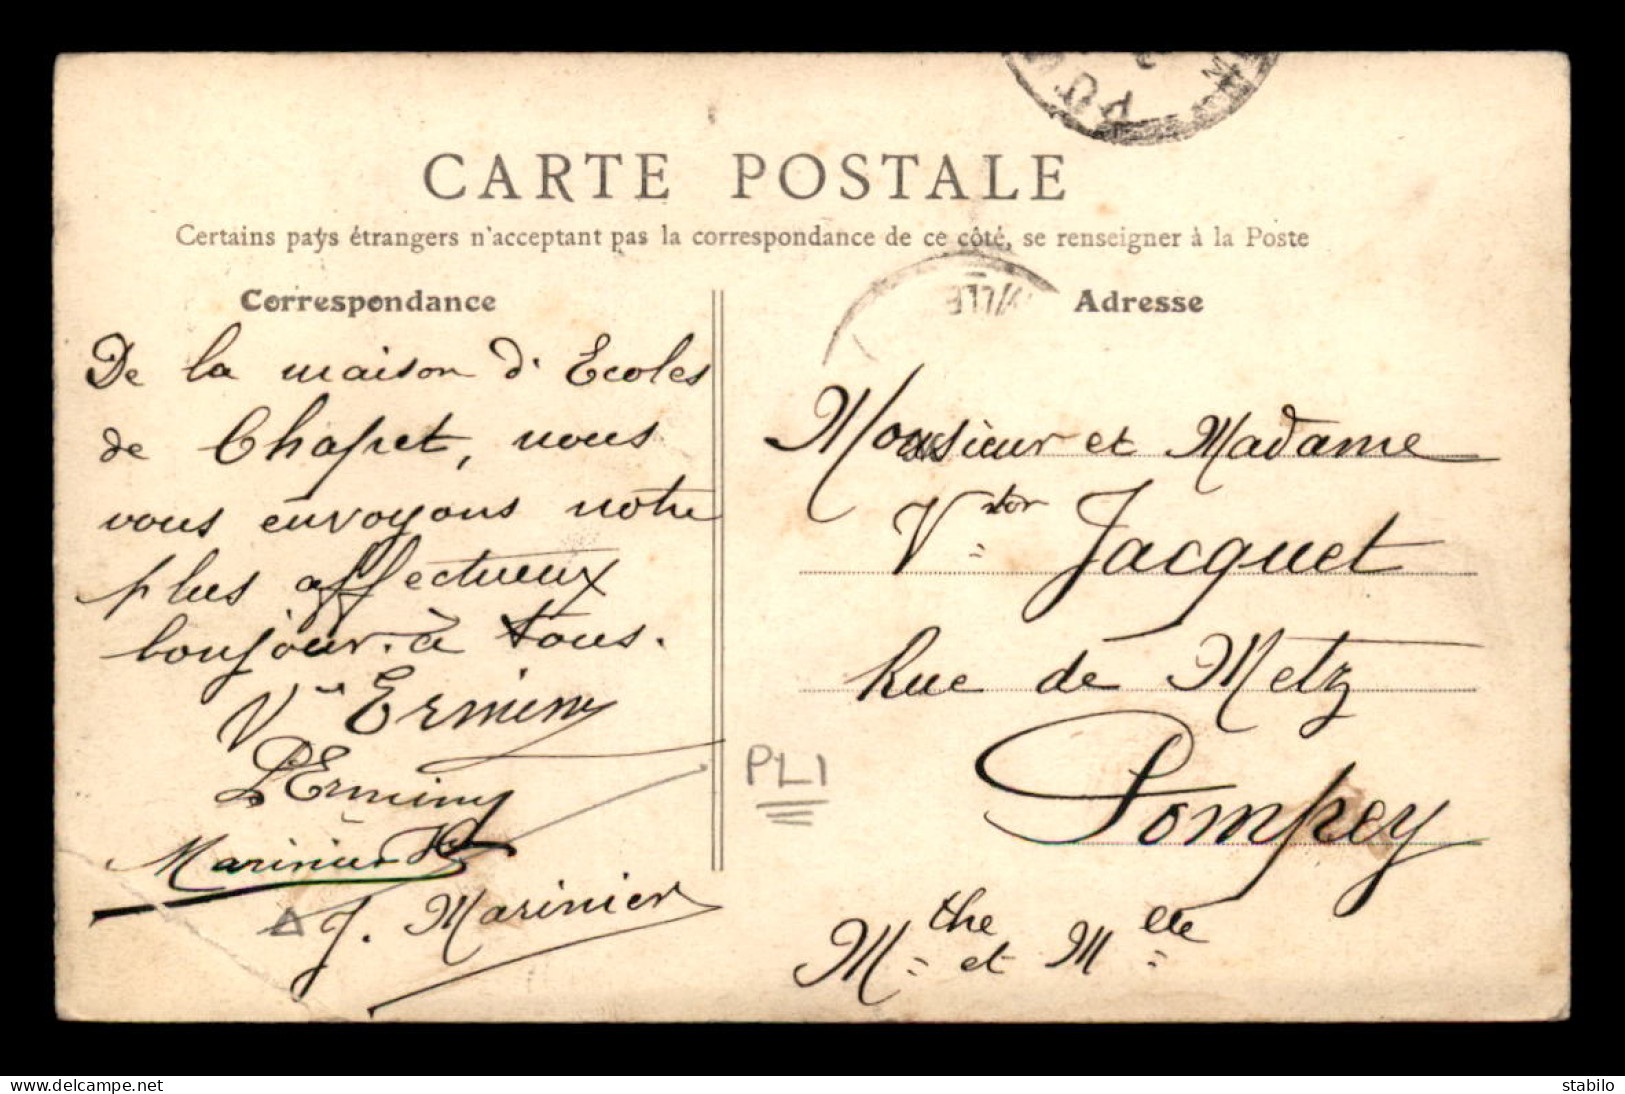 CARTE POSTALE
Certains pays étrangers n'acceptent pas la correspondance de ce côté, se renseigner à la Poste
Correspondance
De la maison d'Ecoles
de Chapet, nous
vous envoyons notre
plus affectueux
bonjour à tous.
Ermeny
L Ermeny
Marinier
J. Marinier
PLI
Adresse
Monsieur et Madame
Vtor Jacquet
Rue de Metz
Pompey
Mthe et Melle
delcampe.net
stabilo